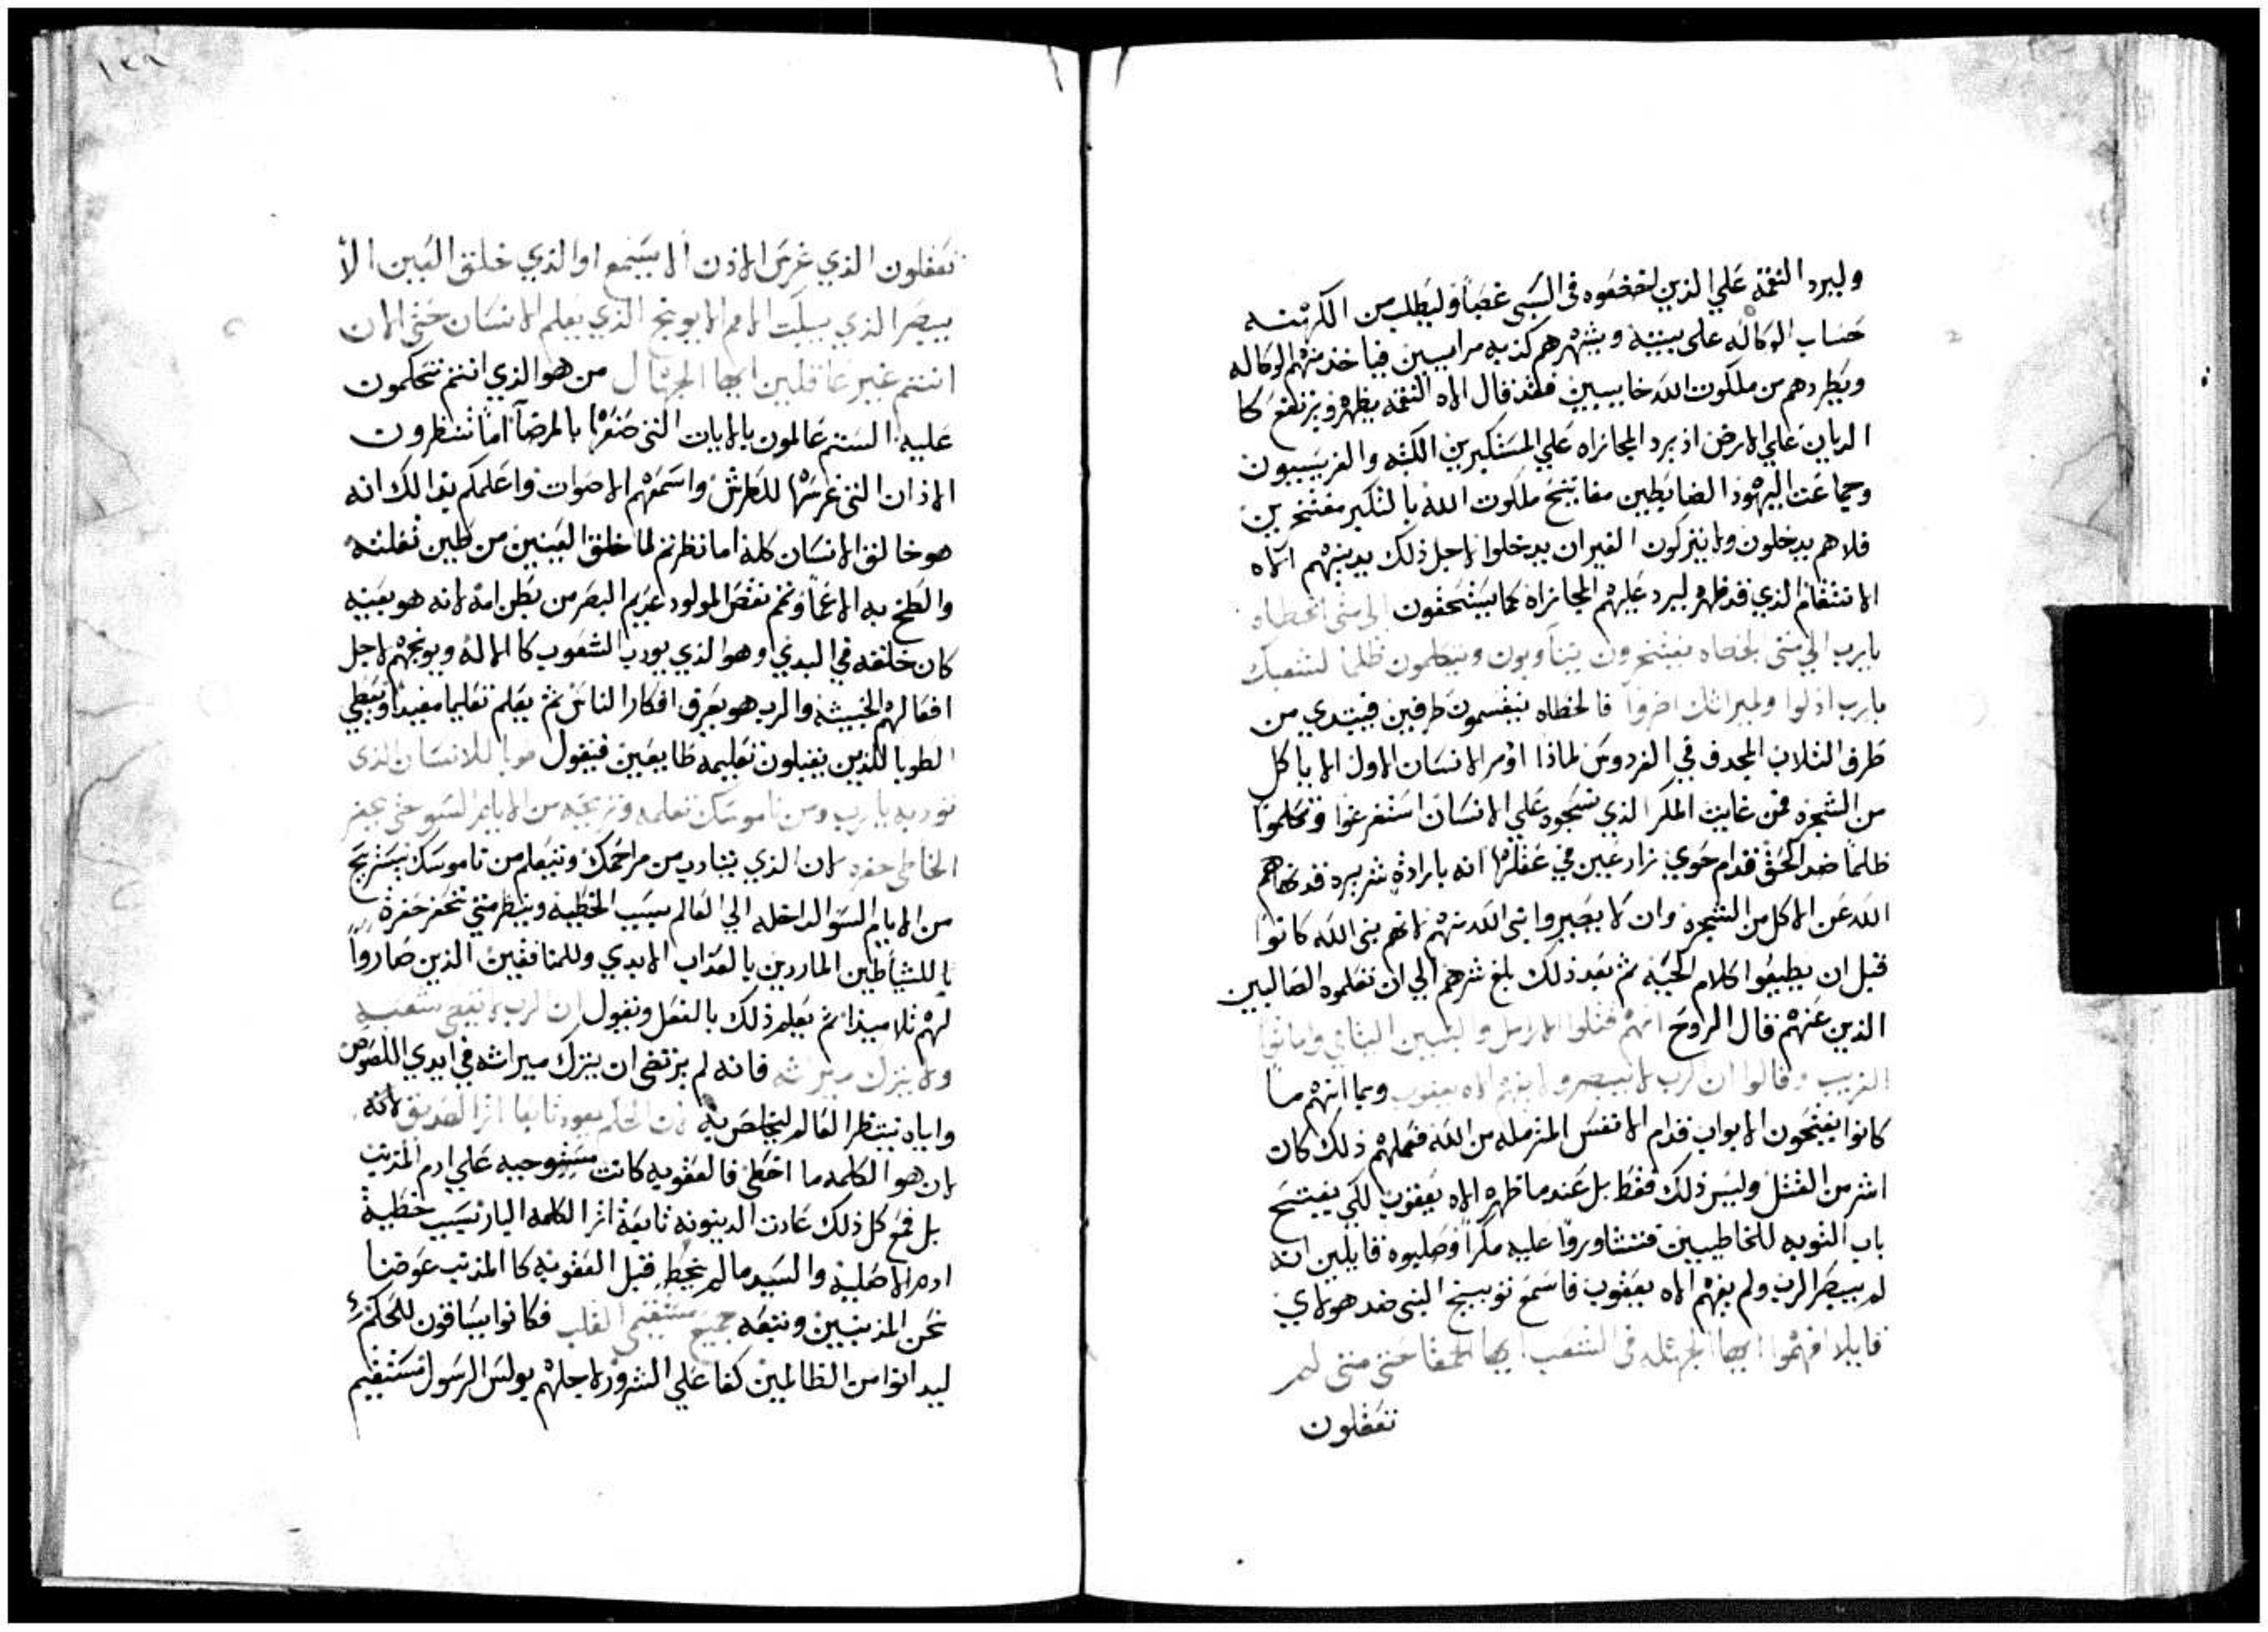 وليرد النقمة علي الذين اخضعوه في السبي غصبًا وليطلب من الكهنه
حساب الوكاله علي بيته ويشهرهم كذبه مراييين فياخذ منهم الوكاله
ويطردهم من ملكوت الله خايبيين فلقد قال الاه النقمه يظهر ويرتفع كا
الديان علي الارض اذ يرد المجازاه علي المستكبرين الكتبه والفريسيون
وجماعت اليهود الضابطين مفاتيح ملكوت الله بالتكبر مفتخرين
فلا هم يدخلون ولا يتركون الغير ان يدخلوا لاجل ذلك يدينهم الاه
الانتقام الذي قد ظهر ليرد عليهم المجازاه كما يستحقون الي متي الخطاه
يا رب الي متي الخطاه يفتخرون يتناوبون ويتكلمون ظلمًا لشعبك
يا رب اذلوا ولميراثك اضروا فالخطاه ينقسمون طرفين فيبتدي من
طرف الثلاب المجدف في الفردوس لماذا اومر الانسان الاول الا ياكل
من الشجره فمن غايت المكر الذي نسجوه علي الانسان استفرغوا وتكلموا
ظلمًا ضد الحق قدام حوي زارعين في عقلها انه بارادة شريره قد نهاهم
الله عن الاكل من الشجره وان لا يصيروا بني الله منهم لانهم بني الله كانوا
قبل ان يطيعوا كلام الحيه ثم بعد ذلك بلغ شرهم الي ان تعلموه الصالبين
الذين عنهم قال الروح انهم قتلوا الارامل واليتامي واماتوا
الغريب وقالوا ان الرب لا يبصر ولا يفهم الاه يعقوب وبما انهم ما
كانوا يفتحون الابواب قدام الانفس المترمله من الله فعملهم ذلك كان
اشر من القتل وليس ذلك فقط بل عندما ظهر الاه يعقوب لكي يفتح
باب التوبه للخاطيين فتشاوروا عليه مكرًا وصلبوه قايلين انه
لم يبصر الرب ولم يفهم الاه يعقوب فاسمع توبيخ النبي ضد هولاي
قايلا افهموا ايها الجهله في الشعب ايها الحمقا حتي متي لم
تعقلون
تعقلون الذي غرس الاذن الا يسمع او الذي خلق العين الا
يبصر الذي يبكت الامم الا يوبخ الذي يعلم الانسان حتي الان
انتم غير عاقلين ايها الجهال من هو الذي انتم تتحكمون
عليه الستم عالمون بالايات التي صنعها بالمرضآ اما تنظرون
الاذان التي غرسها للطرش واسمعهم الاصوات واعلمكم بذالك انه
هو خالق الانسان كله اما نظرتم لما خلق العينين من طين تفلته
والطخ به الاعما وتمم نقص المولود عديم البصر من بطن امه لانه هو بعينه
كان خلقه في البدي وهو الذي يورب الشعوب كا الاله ويوبخهم لاجل
افعالهم الخبيثه والرب هو يعرف افكار الناس ثم يعلم تعليما مفيدا ويعطي
الطوبا للذين يقبلون تعليمه طايعين فيقول طوبا للانسان الذي
تودبه يا رب ومن ناموسك تعلمه وتريحه من الايام السو حتي يحفر
الخاطي حفره لان الذي يتادب من مراحمك ويتعلم من ناموسك يستريح
من الايام السو الداخله الي العالم بسبب الخطيه وينظر متي تحفر حفرة
باللشياطين الماردين بالعذاب الابدي وللمنافقين الذين صاروا
لهم تلاميذا ثم يعلم ذلك بالفعل ويقول ان الرب لا يقصي شعبه
ولا يترك ميراثه فانه لم يرتضي ان يترك ميراثه في ايدي اللصوص
واياه ينتظر العالم ليخلص به لان الحكم يعود تابعا اثر الصديق لانه
لان هو الكلمه ما اخطي فالعقوبه كانت مستوجبه علي ادم المذنب
بل فمع كل ذلك عادت الدينونه تابعة اثر الكلمه البار بسبب خطية
ادم الاصليه والسيد ما لم يخط قبل العقوبه كا المذنب عوضنا
نحن المذنبين وتبعه جميع مستقيمي القلب فكانوا يساقون للحكم
ليدانوا من الظالمين كفا علي الشرور لاجلهم بولس الرسول مستقيم